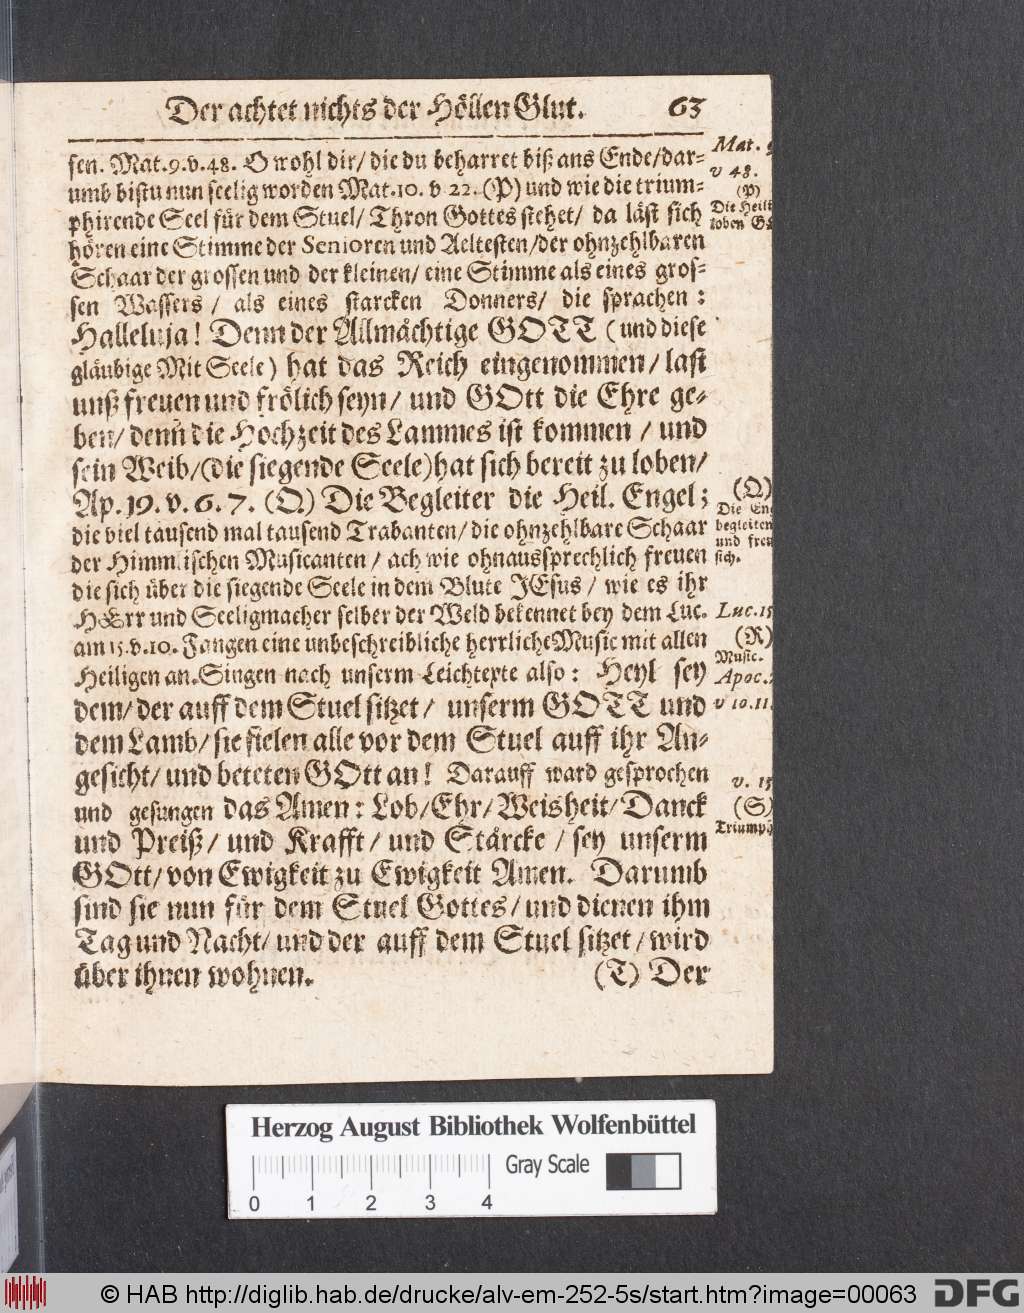 Der achtet nichts der Höllen Glut. 63
sen. Mat.9.v.48. O wohl dir/ die du beharret biß ans Ende/dar-
umb bistu nun seelig worden Mat.10. v 22. (P) und wie die trium-
phirende Seel für dem Stuel/ Thron Gottes stehet/ da läst sich
hören eine Stimme der Senioren und Aeltesten/der ohnzehlbaren
Schaar der grossen und der kleinen/ eine Stimme als eines gros-
sen Wassers / als eines starcken Donners/ die sprachen:
Halleluja! Denn der Allmächtige GOTT (und diese
gläubige Mit Seele) hat das Reich eingenommen/ last
unß freuen und frölich seyn/ und GOtt die Ehre ge-
ben/ denn die Hochzeit des Lammes ist kommen / und
sein Weib/(die siegende Seele) hat sich bereit zu loben/
Ap. 19. v. 6. 7. (Q) Die Begleiter die Heil. Engel;
die viel tausend mal tausend Trabanten/ die ohnzehlbare Schaar
der Himmlischen Musicanten / ach wie ohnaussprechlich freuen
die sich über die siegende Seele in dem Blute JEsus / wie es ihr
HErr und Seeligmacher selber der Weld bekennet bey dem Luc.
am 15.v.10. Fangen eine unbeschreibliche herrliche Music mit allen
Heiligen an. Singen nach unserm Leichtexte also: Heyl sey
dem/ der auff dem Stuel sitzet / unserm GOTT und
dem Lamb/ sie fielen alle vor dem Stuel auff ihr An-
gesicht/ und beteten GOtt an! Darauff ward gesprochen
und gesungen das Amen: Lob/Ehr/ Weisheit/ Danck
und Preiß/ und Krafft/ und Stärcke / sey unserm
GOtt/ von Ewigkeit zu Ewigkeit Amen. Darumb
sind sie nun für dem Stuel Gottes/ und dienen ihm
Tag und Nacht/ und der auff dem Stuel sitzet / wird
über ihnen wohnen. (T) Der
Mat.
v 48.
(P)
Die
loben
(Q)
Die
begleiten
und
sich.
Luc. 15
(R)
Music.
Apoc.
v 10. 11.
v. 15
(S)
Triumph
Herzog August Bibliothek Wolfenbüttel
Gray Scale
0 1 2 3 4
© HAB http://diglib.hab.de/drucke/alv-em-252-5s/start.htm?image=00063
DFG